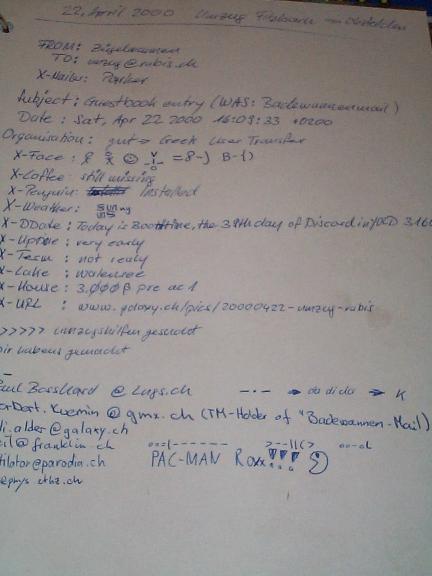 22, April 2000 Umzug Fislibach → Obfelden
FROM: Zügelmannen
TO: umzug@rubis.ch
X-Mailer: Parker
Subject: Guestbook entry (WAS: Badewannenmail)
Date: Sat, Apr 22 2000 16:09:33 +0200
Organisation: gut → Greek User Transfer
X-Face: =8-) B-1)
X-Coffee: still missing
X-Penguin: Installed
X-Weather: sunny
X-DDate: Today is Boomtime, the 39th day of Discord in YOLD 3166
X-Uptime: very early
X-Term: not really
X-Lake: walensee
X-House: 3.000β pre ac1
X-URL: www.galaxy.ch/pics/20000422-umzug-rubis
>>>>> umzugshilfen gesucht
wir habens gemacht
Paul Bosshard @ lugs.ch -.- → da di da → K
Kuemin @ gmx.ch (TM-Holder of "Badewannen-Mail)
li.alder@galaxy.ch
eil@franklin.ch
tilator@parodia.ch PAC-MAN Roxx!!!
ephys.ethz.ch